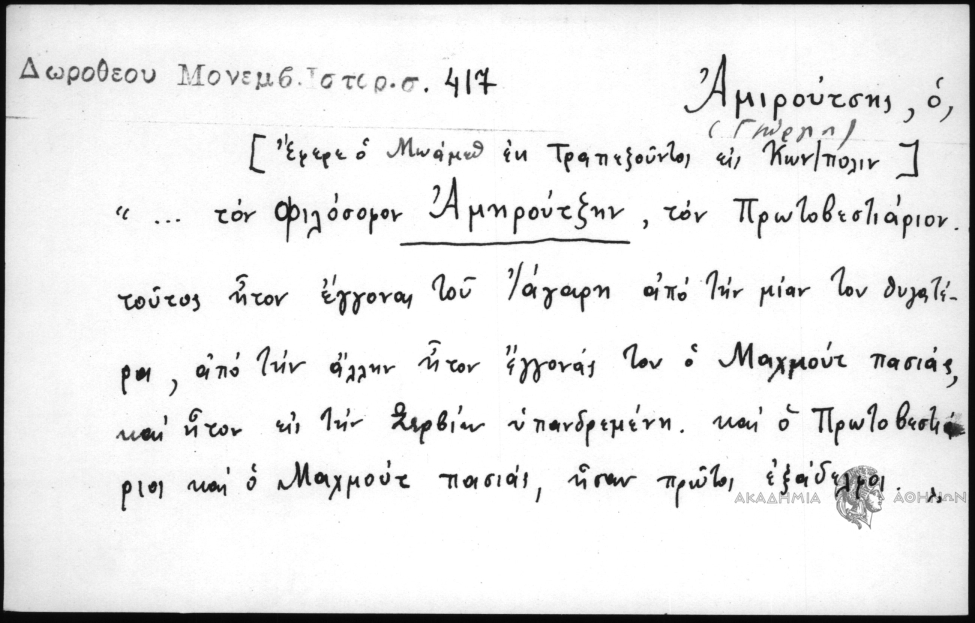 Δωροθεου Μονεμβ. Ιστορ. σ. 417
Ἀμιρούτσης, ὁ,
(Γιώργη)
[ἔφερε ὁ Μωάμεθ ἐκ Τραπεζοῦντος εἰς Κων/πολιν]
“ ... τόν φιλόσοφον Ἀμηρούτζην, τόν Πρωτοβεστιάριον.
τοῦτος ἦτον ἔγγονας τοῦ Ἰάγαρη ἀπό τήν μίαν του θυγατέ-
ρα, ἀπό τήν ἄλλην ἦτον ἔγγονάς του ὁ Μαχμούτ πασιάς,
καί ἦτον εἰς τήν Σερβίαν ὑπανδρεμένη. καί ὁ Πρωτοβεστιά-
ριος καί ὁ Μαχμούτ πασιάς, ἦσαν πρῶτοι ἐξάδελφοι. „
ΑΚΑΔΗΜΙΑ ΑΘΗΝΩΝ